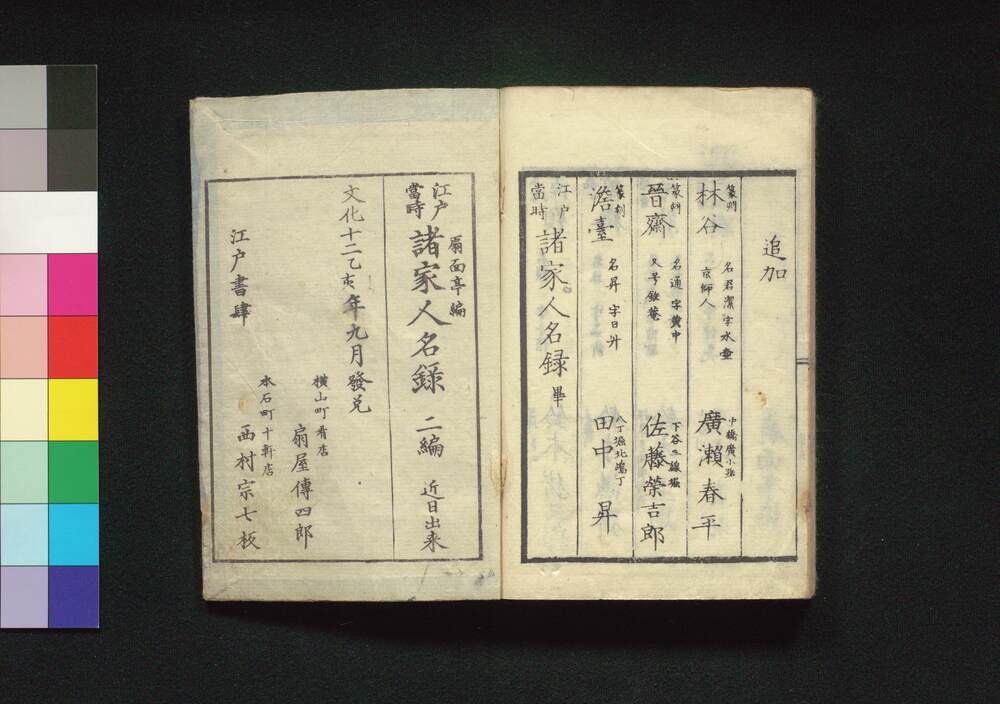 追加
篆刻
林谷
名君潔字水壺
京師人
中橋廣小路
廣瀬春平
篆刻
晉齋
名通 字黄中
又号銕菴
下谷三線堀
佐藤榮吉郎
篆刻
澹臺
名昇 字日升
八丁堀北嶋丁
田中 昇
江戸
當時
諸家人名録 畢
扇面亭編
江戸
當時
諸家人名録 二編 近日出来
文化十二乙亥年九月發兌
江戸書肆
横山町肴店
扇屋傳四郎
本石町十軒店
西村宗七板